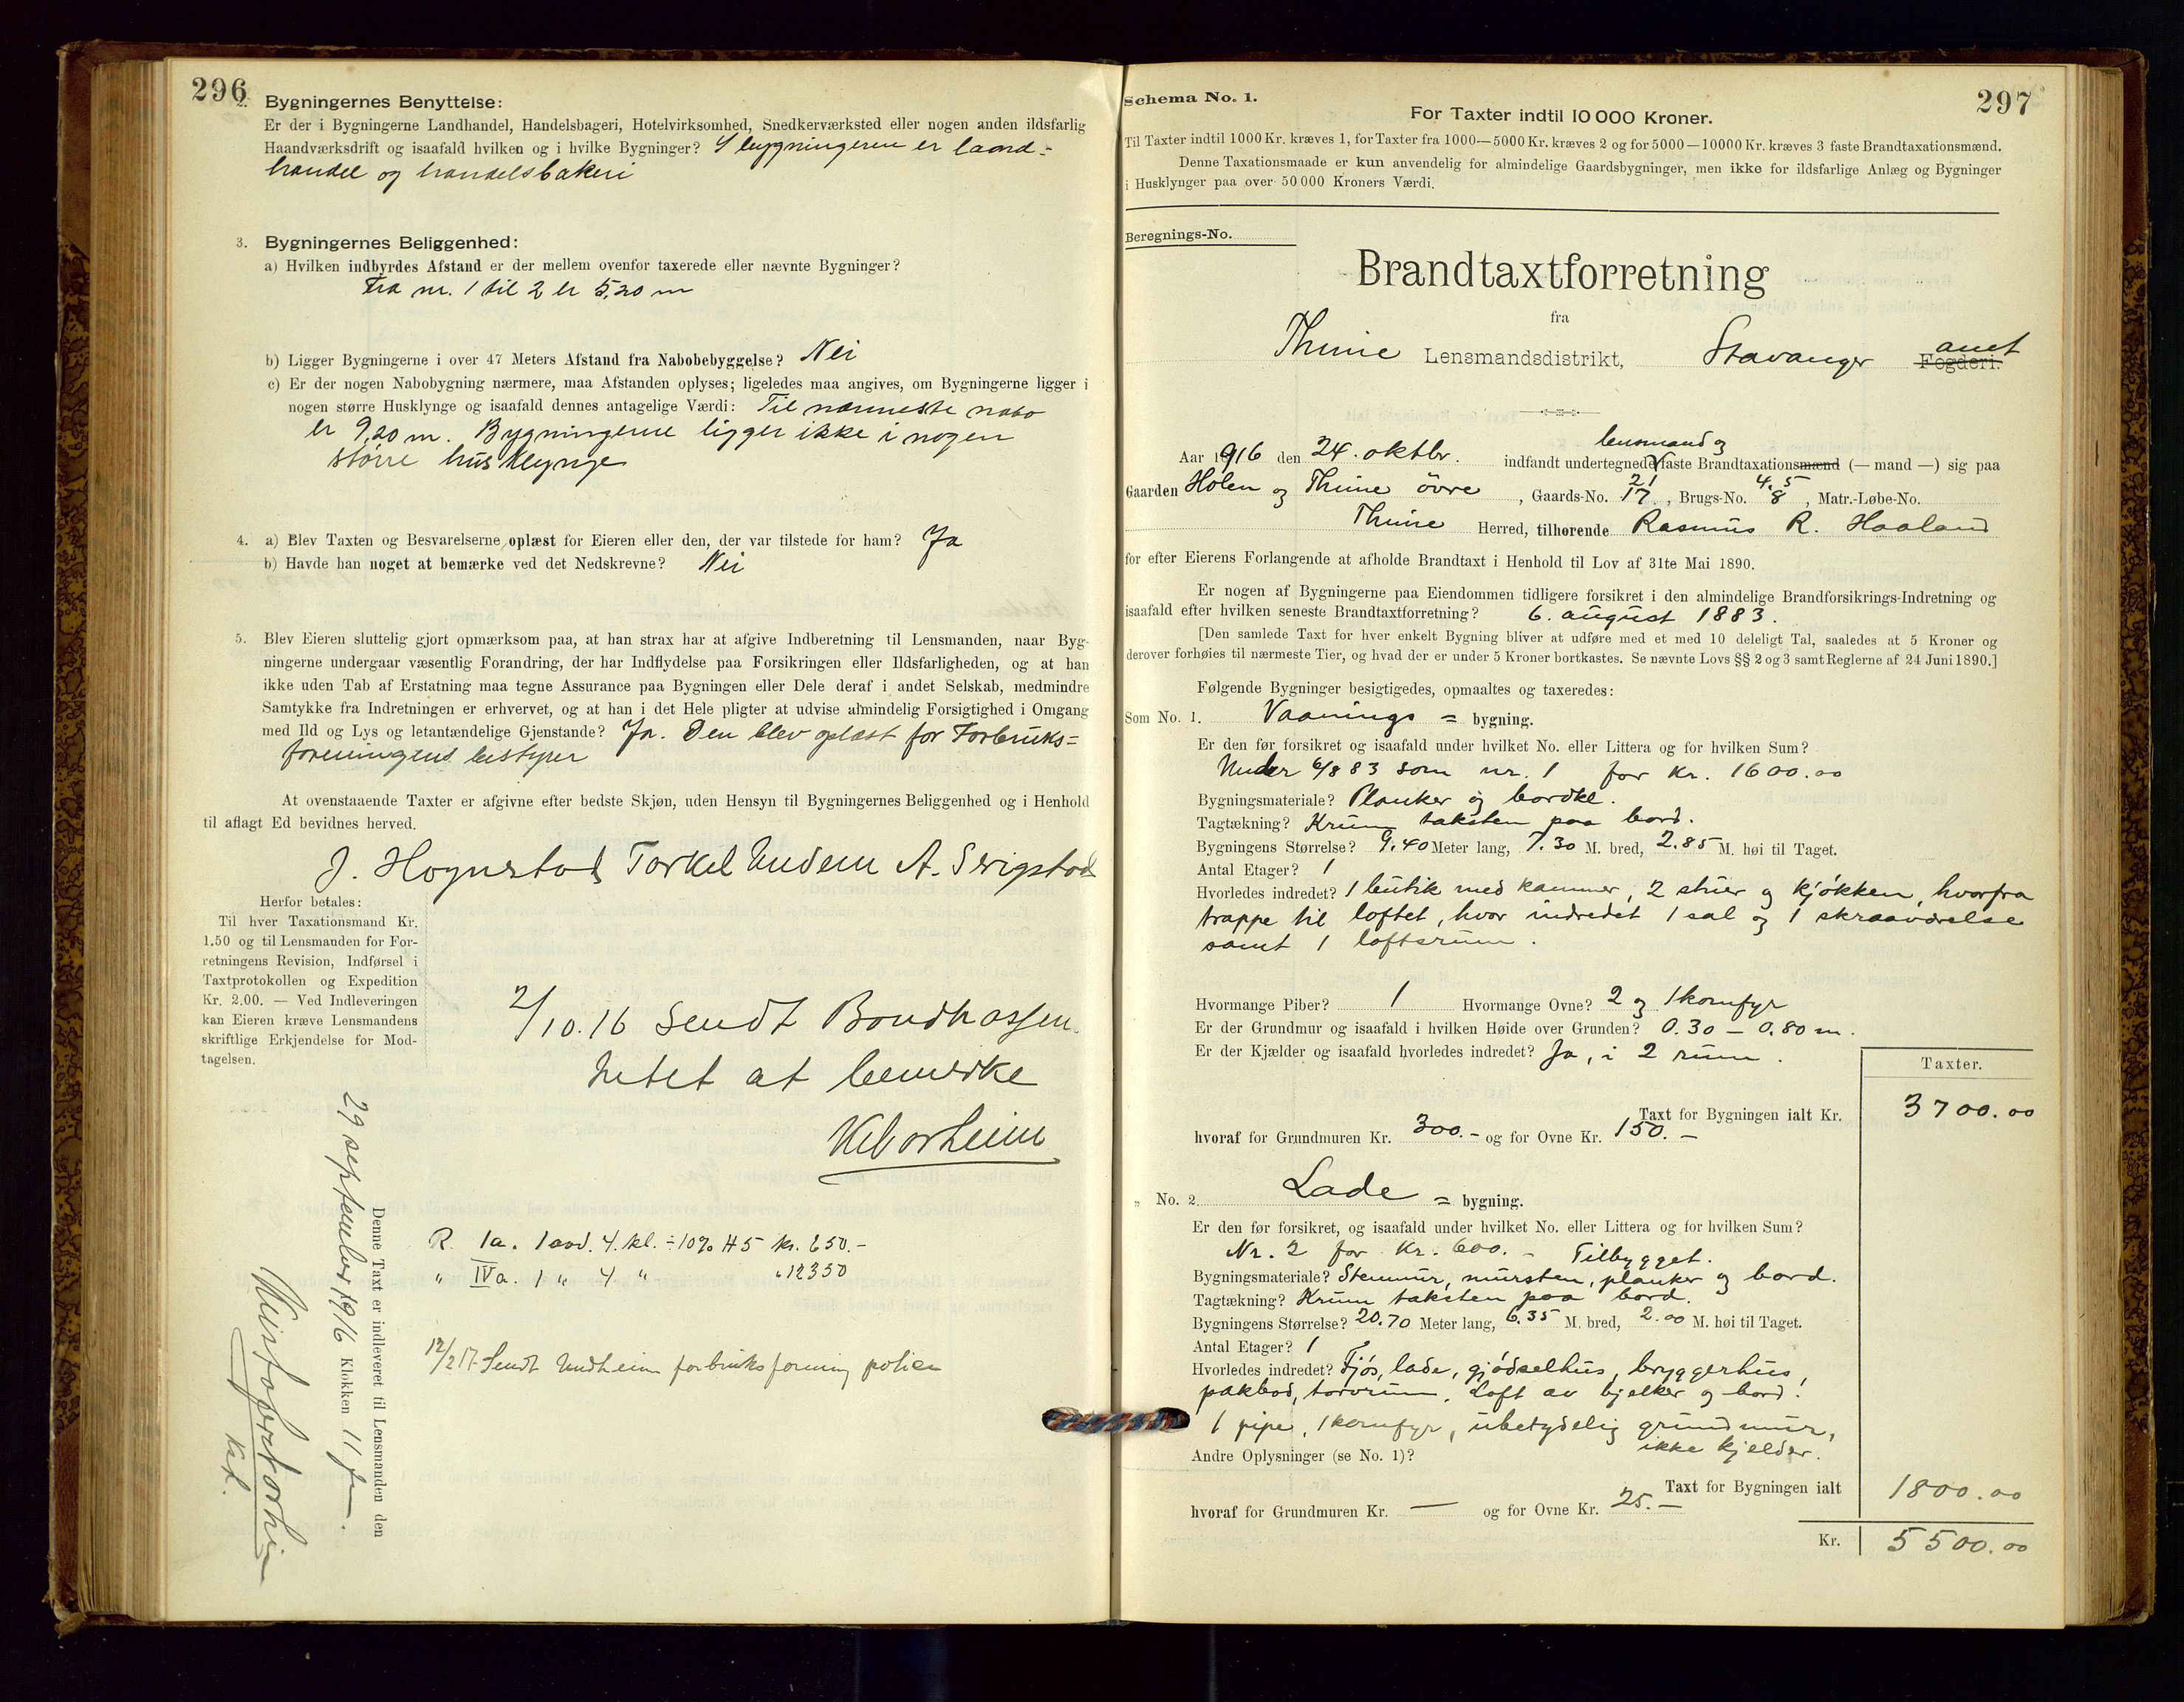 296
2. Bygningernes Benyttelse:
Er der i Bygningerne Landhandel, Handelsbageri, Hotelvirksomhed, Snedkerværksted eller nogen anden ildsfarlig
Haandværksdrift og isaafald hvilken og i hvilke Bygninger? I bygningerne er land-
handel og handelsbakeri
3. Bygningernes Beliggenhed:
a) Hvilken indbyrdes Afstand er der mellem ovenfor taxerede eller nævnte Bygninger?
Fra nr. 1 til 2 er 5,20 m
b) Ligger Bygningerne i over 47 Meters Afstand fra Nabobebyggelse? Nei
c) Er der nogen Nabobygning nærmere, maa Afstanden oplyses; ligeledes maa angives, om Bygningerne ligger i
nogen større Husklynge og isaafald dennes antagelige Værdi: Til nærmeste nabo
er 9,20 m. Bygningerne ligger ikke i nogen
större husklynge
4. a) Blev Taxten og Besvarelserne oplæst for Eieren eller den, der var tilstede for ham? Ja
b) Havde han noget at bemærke ved det Nedskrevne? Nei
5. Blev Eieren sluttelig gjort opmærksom paa, at han strax har at afgive Indberetning til Lensmanden, naar Byg-
ningerne undergaar væsentlig Forandring, der har Indflydelse paa Forsikringen eller Ildsfarligheden, og at han
ikke uden Tab af Erstatning maa tegne Assurance paa Bygningen eller Dele deraf i andet Selskab, medmindre
Samtykke fra Indretningen er erhvervet, og at han i det Hele pligter at udvise almindelig Forsigtighed i Omgang
med Ild og Lys og letantændelige Gjenstande? Ja. Den blev oplæst for Forbruks=
foreningens bestyrer
At ovenstaaende Taxter er afgivne efter bedste Skjøn, uden Hensyn til Bygningernes Beliggenhed og i Henhold
til aflagt Ed bevidnes herved.
J. Hognestad Torkel Undem A. Serigstad
Herfor betales:
Til hver Taxationsmand Kr.
1,50 og til Lensmanden for For-
retningens Revision, Indførsel i
Taxtprotokollen og Expedition
Kr. 2.00. — Ved Indleveringen
kan Eieren kræve Lensmandens
skriftlige Erkjendelse for Mod-
tagelsen.
2/10.16 Sendt Brandkassen.
Intet at bemerke
Denne Taxt er indleveret til Lensmanden den
29 september 1916 Klokken 11 fm.
R. Ia. 1 avd. 4. kl. ÷ 10% H 5 kr. 650.-
" IVa. 1 " 4 " " 12350
12/2 17. Sendt Undheim forbruksforening polisen
Schema No. 1.
297
For Taxter indtil 10 000 Kroner.
Til Taxter indtil 1000 Kr. kræves 1, for Taxter fra 1000—5000 Kr. kræves 2 og for 5000—10000 Kr. kræves 3 faste Brandtaxationsmænd.
Denne Taxationsmaade er kun anvendelig for almindelige Gaardsbygninger, men ikke for ildsfarlige Anlæg og Bygninger
i Husklynger paa over 50 000 Kroners Værdi.
Beregnings-No.
Brandtaxtforretning
fra
Thime Lensmandsdistrikt, Stavanger Fogderi. amt
lensmand og
Aar 1916 den 24. oktbr. indfandt undertegnede faste Brandtaxationsmænd (— mand —) sig paa
Gaarden Holen og Thime övre, Gaards-No. 21 17, Brugs-No. 4.5 8, Matr.-Løbe-No.
Thime Herred, tilhørende Rasmus R. Haaland
for efter Eierens Forlangende at afholde Brandtaxt i Henhold til Lov af 31te Mai 1890.
Er nogen af Bygningerne paa Eiendommen tidligere forsikret i den almindelige Brandforsikrings-Indretning og
isaafald efter hvilken seneste Brandtaxtforretning? 6. august 1883.
[Den samlede Taxt for hver enkelt Bygning bliver at udføre med et med 10 deleligt Tal, saaledes at 5 Kroner og
derover forhøies til nærmeste Tier, og hvad der er under 5 Kroner bortkastes. Se nævnte Lovs §§ 2 og 3 samt Reglerne af 24 Juni 1890.]
Følgende Bygninger besigtigedes, opmaaltes og taxeredes:
Som No. 1. Vaanings = bygning.
Er den før forsikret og isaafald under hvilket No. eller Littera og for hvilken Sum?
Under 6/8 83 som nr. 1 for kr. 1600.00
Bygningsmateriale? Planker og bordkl.
Tagtækning? Krum taksten paa bord.
Bygningens Størrelse? 9.40 Meter lang, 7.30 M. bred, 2.85 M. høi til Taget.
Antal Etager? 1
Hvorledes indredet? 1 butik med kammer, 2 stuer og kjökken, hvorfra
trappe til loftet, hvor indredet 1 sal og 1 skraaværelse
samt 1 loftsrum.
Hvormange Piber? 1 Hvormange Ovne? 2 og 1 komfyr
Er der Grundmur og isaafald i hvilken Høide over Grunden? 0.30 — 0.80 m.
Er der Kjælder og isaafald hvorledes indredet? Ja, i 2 rum.
Taxter.
Taxt for Bygningen ialt Kr. 3700.00
hvoraf for Grundmuren Kr. 300.- og for Ovne Kr. 150.-
" No. 2. Lade = bygning.
Er den før forsikret, og isaafald under hvilket No. eller Littera og for hvilken Sum?
Nr. 2 for Kr. 600. - Tilbygget.
Bygningsmateriale? Stenmur, mursten, planker og bord.
Tagtækning? Krum taksten paa bord.
Bygningens Størrelse? 20.70 Meter lang, 6.35 M. bred, 2.00 M. høi til Taget.
Antal Etager? 1
Hvorledes indredet? Fjös, lade, gjödselhus, bryggerhus,
pakbod, torvrum. Loft av bjelker og bord.
1 pipe, 1 komfyr, ubetydelig grundmur,
ikke kjelder.
Andre Oplysninger (se No. 1)?
Taxt for Bygningen ialt 1800.00
hvoraf for Grundmuren Kr. — og for Ovne Kr. 25.-
Kr. 5500.00